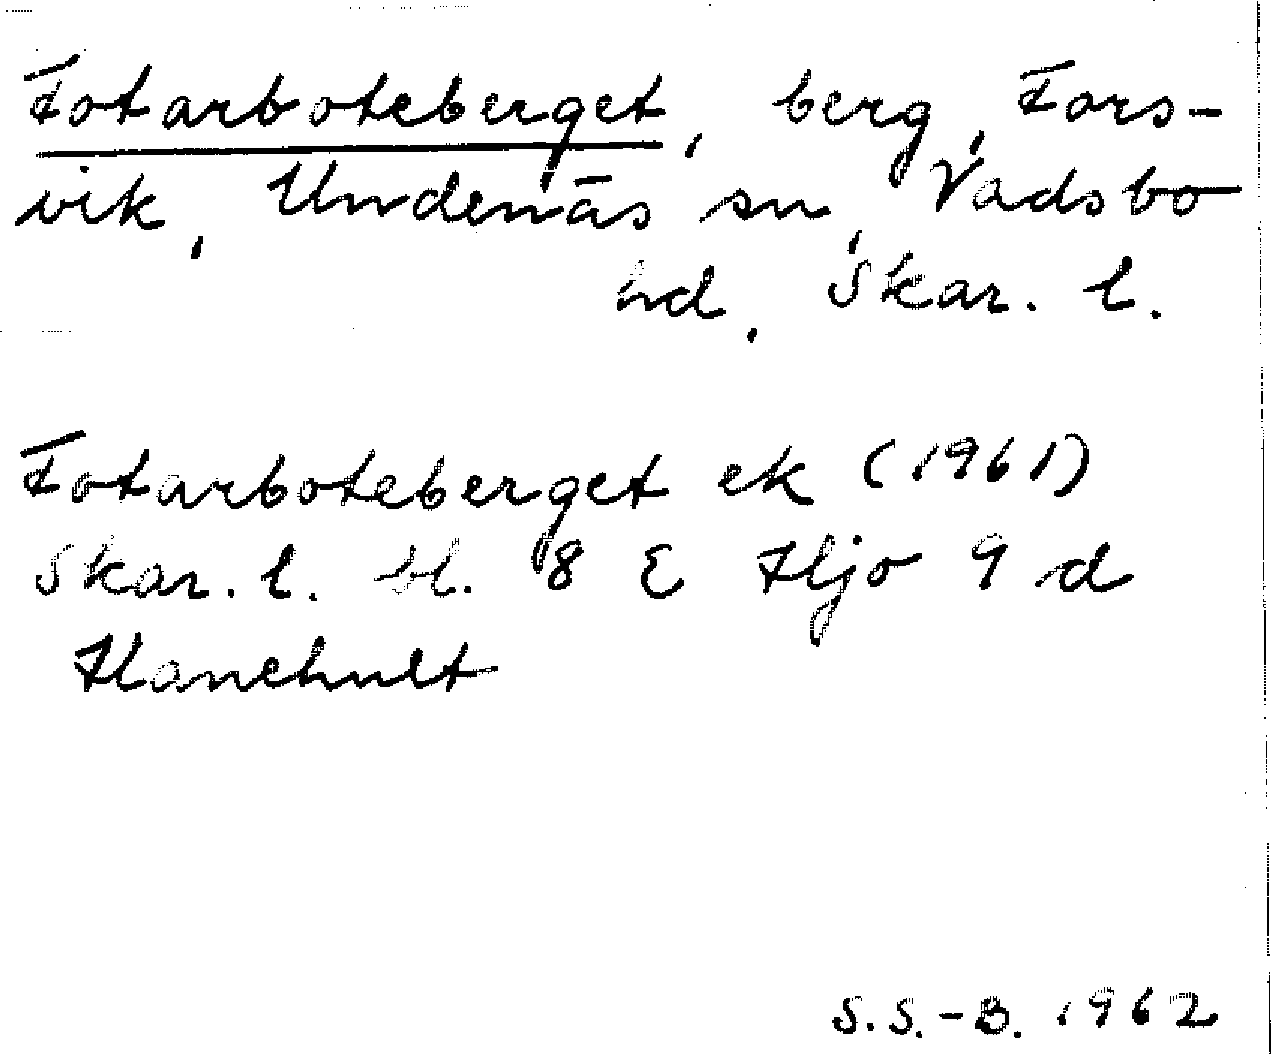 Fotarboteberget, berg, Fors-
vik, Undenäs sn, Vadsbo
hd, Skar. l.
Fotarboteberget ek (1961)
Skar. l. bl. 8 E Hjo 9 d
Hanehult
S.S.-B. 1962